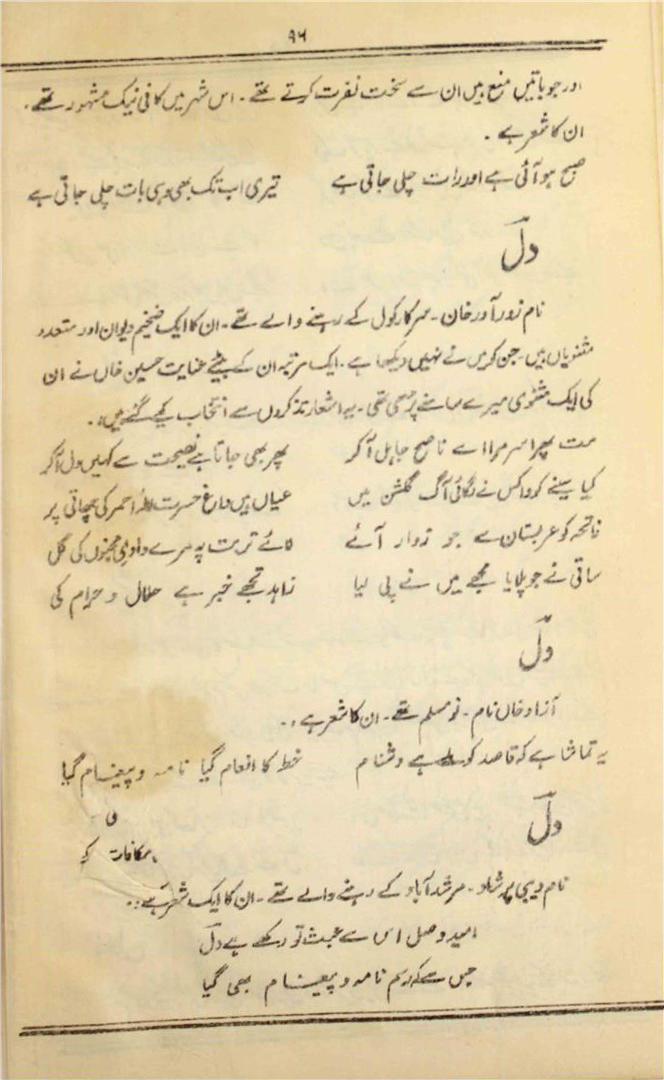 ۹۶
اور جو باتیں منع ہیں ان سے سخت نفرت کرتے تھے ۔ اس شہر میں کافی نیک مشہور تھے ۔
ان کا شعر ہے ۔
صبح ہو آئی ہے اور رات چلی جاتی ہے تیری اب تک بھی وہی بات چلی جاتی ہے
دلؔ
نام زور آور خان ۔ سرکار کول کے رہنے والے تھے ۔ ان کا ایک ضخیم دیوان اور متعدد
مثنویاں ہیں ۔ جن کو میں نے نہیں دیکھا ہے ۔ ایک مرتبہ ان کے بیٹے عنایت حسین خاں نے ان
کی ایک مثنوی میرے سامنے پڑھی تھی ۔ یہ اشعار تذکروں سے انتخاب کیے گئے ہیں ۔
مت پھرا سر مرا اے ناصح جاہل آ کر پھر بھی جاتا ہے نصیحت سے کہیں دل آ کر
کیا سینے کو واکس نے لگائی آگ گلشن میں عیاں ہیں داغ حسرت لالۂ احمر کی چھاتی پر
فاتحہ کو عربستان سے جو زوار آئے لائے تربت پہ مرے وادیٔ مجنوں کی گل
ساقی نے جو پلایا مجھے میں نے پی لیا زاہد تجھے خبر ہے حلال و حرام کی
دلؔ
آزاد خاں نام ۔ نو مسلم تھے ۔ ان کا شعر ہے ۔
یہ تماشا ہے کہ قاصد کو ملے ہے دشنام خط کا انعام گیا نامہ و پیغام گیا
دلؔ
مکافات کے
نام دیبی پرشاد ۔ مرشد آباد کے رہنے والے تھے ۔ ان کا ایک شعر ہے ۔
امید وصل اس سے عبث تو رکھے ہے دلؔ
جس سے کہ رسم نامہ و پیغام بھی گیا